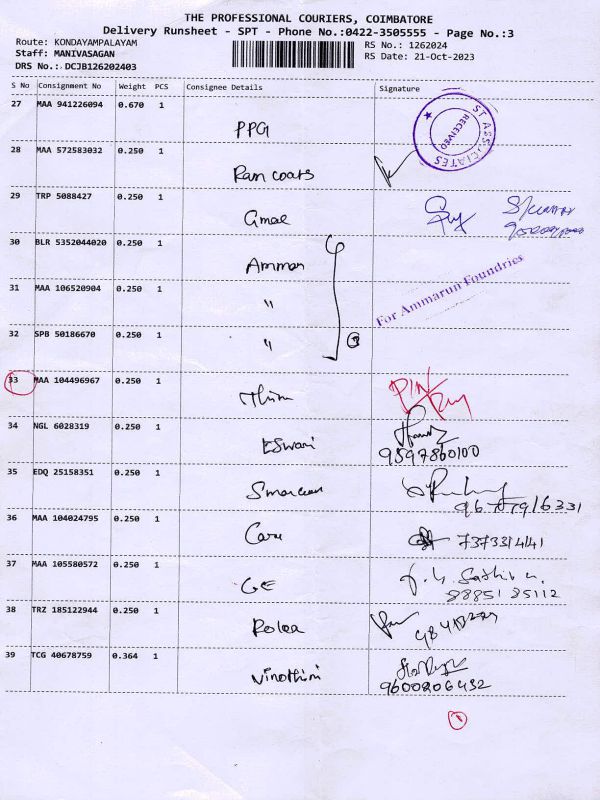 THE PROFESSIONAL COURIERS, COIMBATORE
Delivery Runsheet - SPT - Phone No.:0422-3505555 - Page No.:3
Route: KONDAYAMPALAYAM
RS No.: 1262024
Staff: MANIVASAGAN
RS Date: 21-Oct-2023
DRS No.: DCJB126202403
S No Consignment No Weight PCS Consignee Details Signature
27 MAA 941226094 0.670 1
PPG
ST ASSOCIATES
RECEIVED
28 MAA 572583032 0.250 1
Ram coats
29 TRP 5088427 0.250 1
Gmax
30 BLR 5352044020 0.250 1
Amman
31 MAA 106520904 0.250 1
"
For Ammarun Foundries
32 SPB 50186670 0.250 1
"
3
33 MAA 104496967 0.250 1
PIN
34 NGL 6028319 0.250 1
Eswari
9597860100
35 EDQ 25158351 0.250 1
36 MAA 104024795 0.250 1
37 MAA 105580572 0.250 1
GE
8885135112
38 TRZ 185122944 0.250 1
39 TCG 40678759 0.364 1
Vinothini
9600206432
1